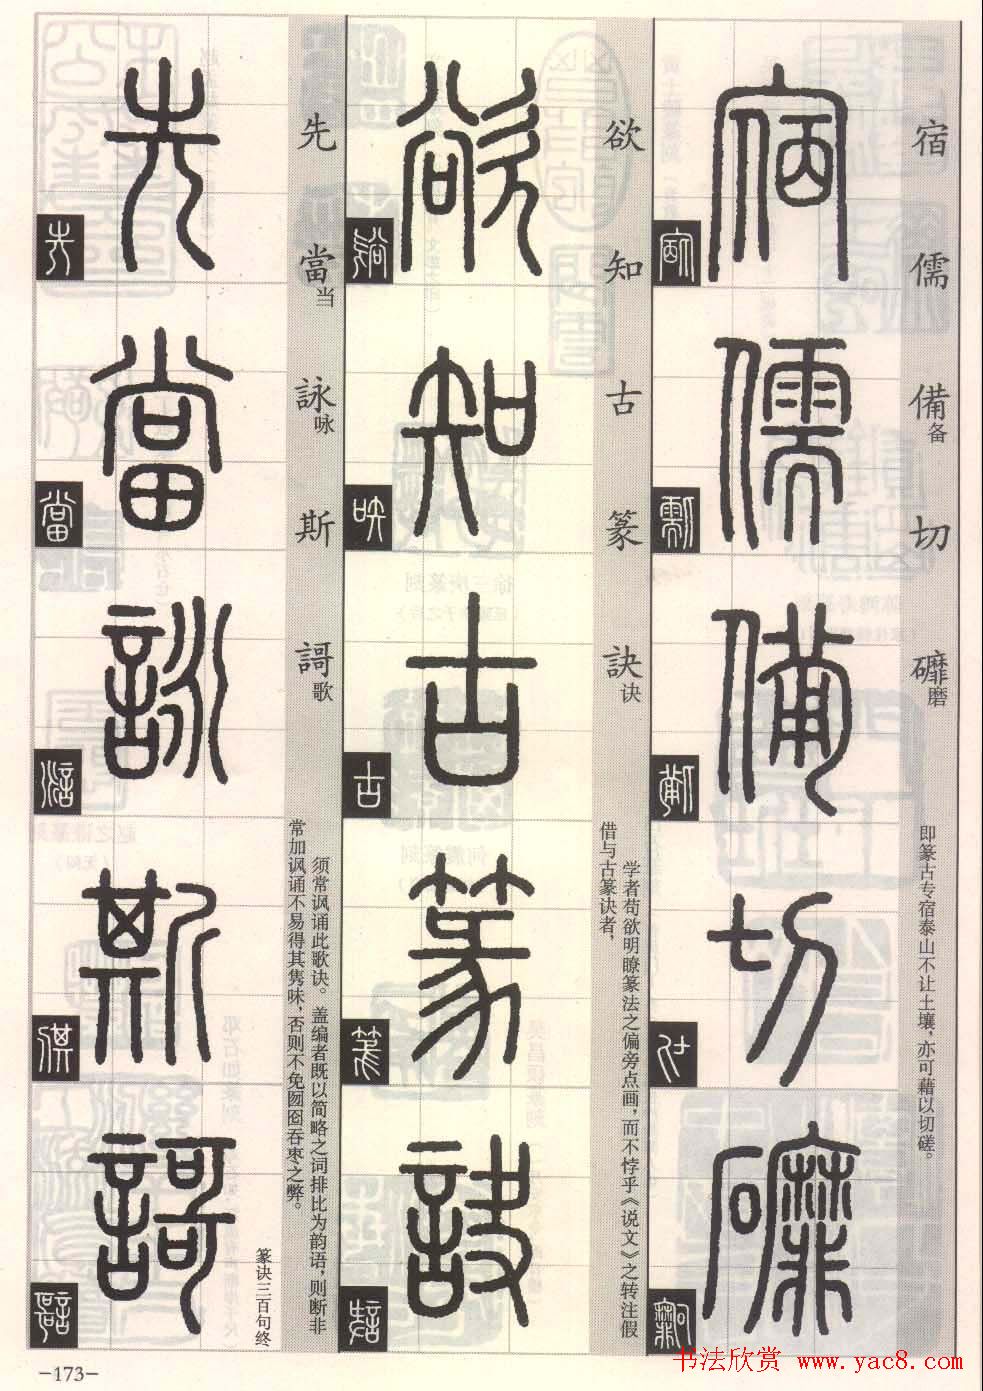 宿儒備切䃺
备
磨
宿
儒
備
切
䃺
即篆古专宿泰山不让土壤，亦可藉以切磋。
欲知古篆訣
诀
欲
知
古
篆
訣
学者苟欲明瞭篆法之偏旁点画，而不悖乎《说文》之转注假
借与古篆诀者，
先當詠斯謌
当
咏
歌
先
當
詠
斯
謌
须常讽诵此歌诀。盖编者既以简略之词排比为韵语，则断非
常加讽诵不易得其隽味，否则不免囫囵吞枣之弊。
篆诀三百句终
-173-
书法欣赏 www.yac8.com